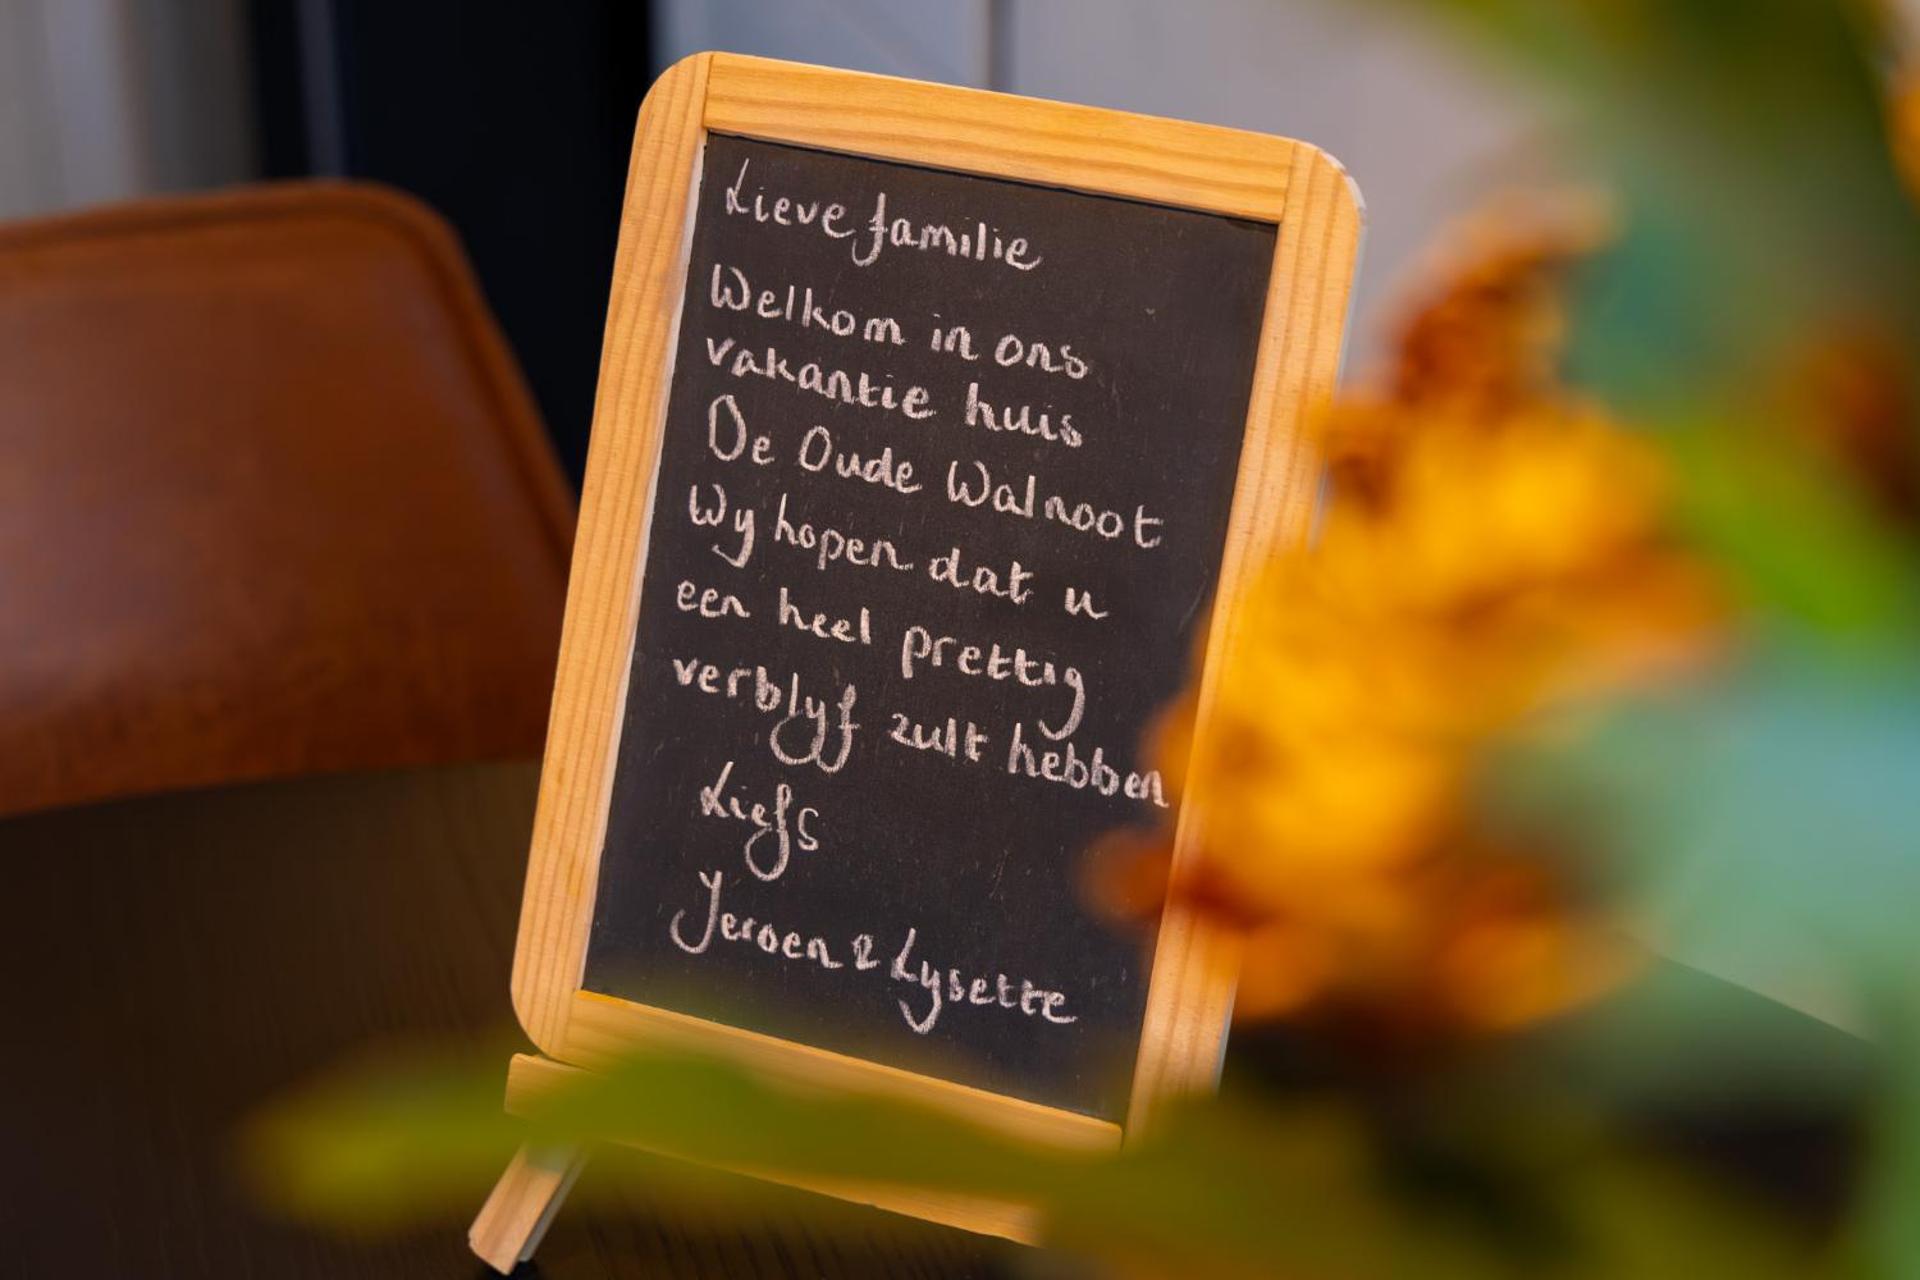 Lieve familie
Welkom in ons
vakantie huis
De Oude Walnoot
Wy hopen dat u
een heel prettig
verblyf zult hebben
Liefs
Jeroen & Lysette